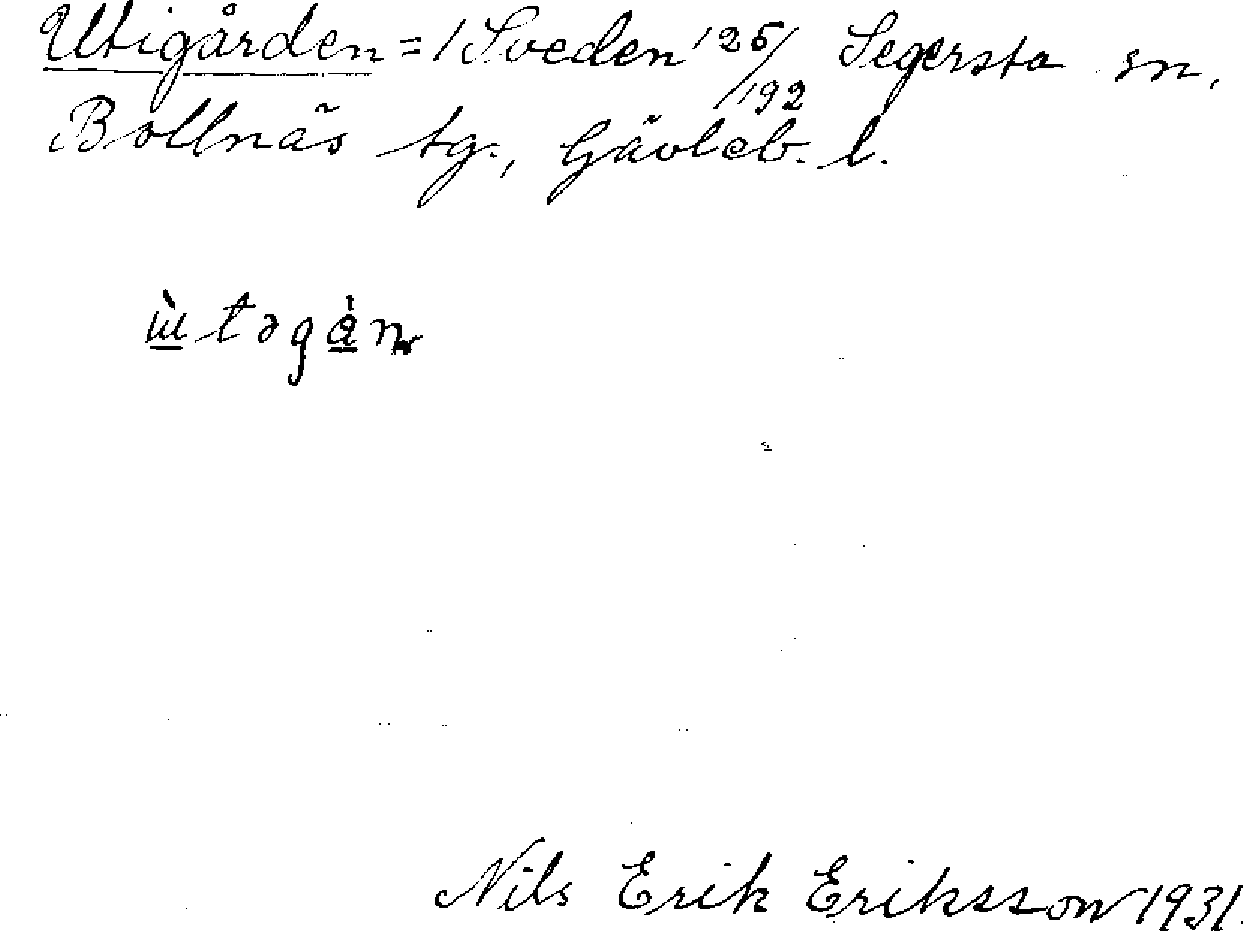 Utigården = 1 Sveden 125/192 Segersta sn,
Bollnäs tg., Gävleb. l.
ɯ̀təgȧn
Nils Erik Eriksson 1931.